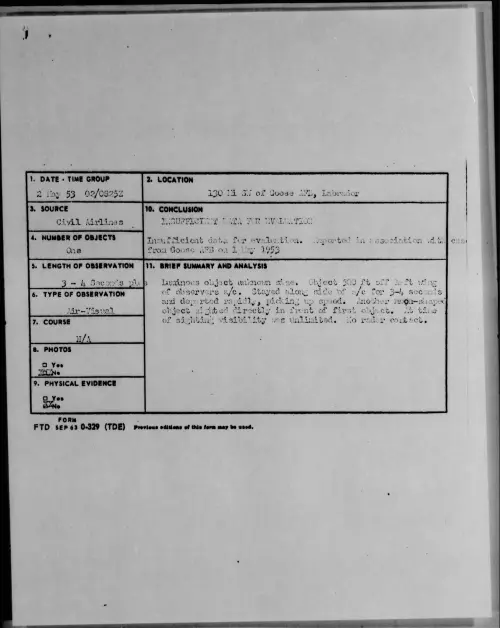 1. DATE - TIME GROUP
2 May 53 02/0825Z
2. LOCATION
130 Mi NW of Goose AFB, Labrador
3. SOURCE
Civil Airlines
10. CONCLUSION
INSUFFICIENT DATA FOR EVALUATION
Insufficient data for evaluation. Reported in association with case
from Goose AFB on 1 May 1953
4. NUMBER OF OBJECTS
One
5. LENGTH OF OBSERVATION
3 - 4 Seconds plus
11. BRIEF SUMMARY AND ANALYSIS
Luminous object unknown size. Object 500 ft off left wing
of observers a/c. Stayed along side of a/c for 3-4 seconds
and departed rapidly, picking up speed. Another moon-shaped
object sighted directly in front of first object. At time
of sighting visibility was unlimited. No radar contact.
6. TYPE OF OBSERVATION
Air-Visual
7. COURSE
N/A
8. PHOTOS
□ Yes
No
9. PHYSICAL EVIDENCE
□ Yes
No
FORM
FTD SEP 63 0-329 (TDE) Previous editions of this form may be used.